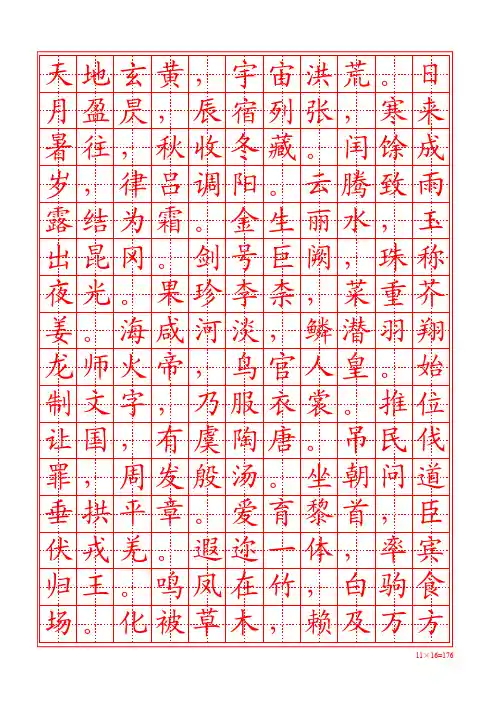 天地玄黄，宇宙洪荒。日
月盈昃，辰宿列张，寒来
暑往，秋收冬藏。闰馀成
岁，律吕调阳。云腾致雨
露结为霜。金生丽水，玉
出昆冈。剑号巨阙，珠称
夜光。果珍李柰，菜重芥
姜。海咸河淡，鳞潜羽翔
龙师火帝，鸟官人皇。始
制文字，乃服衣裳。推位
让国，有虞陶唐。吊民伐
罪，周发殷汤。坐朝问道
垂拱平章。爱育黎首，臣
伏戎羌。遐迩一体，率宾
归王。鸣凤在竹，白驹食
场。化被草木，赖及万方
11×16=176